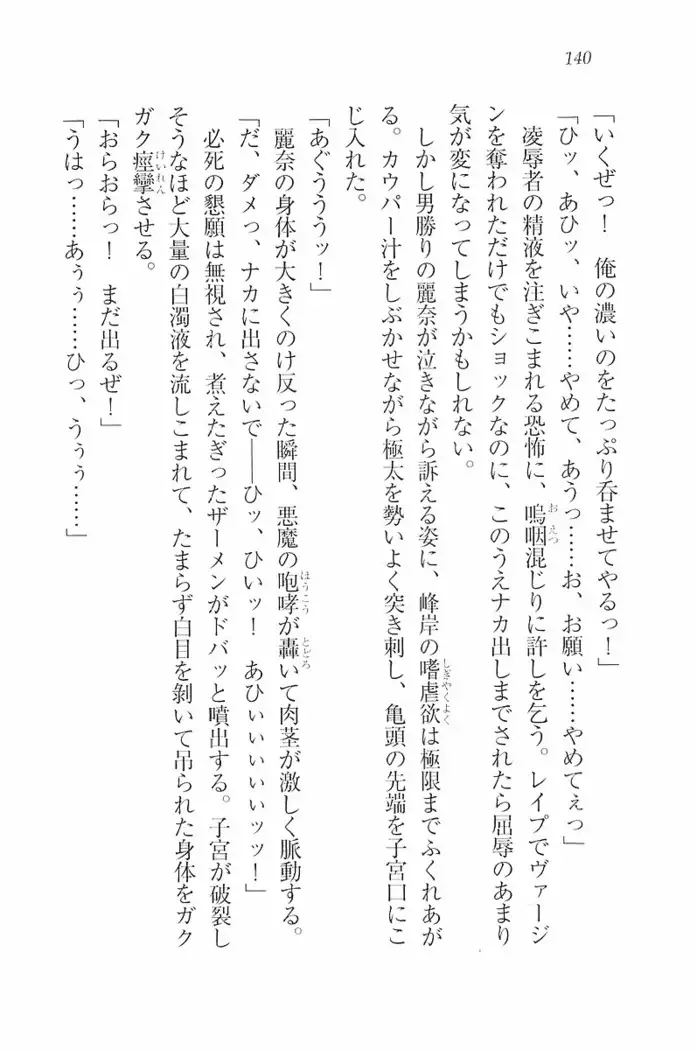 140
「いくぜっ！　俺の濃いのをたっぷり呑ませてやるっ！」
「ひッ、あひッ、いや……やめて、あうっ……お、お願い……やめてぇっ」
凌辱者の精液を注ぎこまれる恐怖に、嗚咽混じりに許しを乞う。レイプでヴァージ
おえつ
ンを奪われただけでもショックなのに、このうえナカ出しまでされたら屈辱のあまり
気が変になってしまうかもしれない。
しかし男勝りの麗奈が泣きながら訴える姿に、峰岸の嗜虐欲は極限までふくれあが
しぎゃくよく
る。カウパー汁をしぶかせながら極太を勢いよく突き刺し、亀頭の先端を子宮口にこ
じ入れた。
「あぐうううッ！」
麗奈の身体が大きくのけ反った瞬間、悪魔の咆哮が轟いて肉茎が激しく脈動する。
ほうこう
とどろ
「だ、ダメっ、ナカに出さないで――ひッ、ひいッ！　あひぃぃぃぃぃッッ！」
必死の懇願は無視され、煮えたぎったザーメンがドバッと噴出する。子宮が破裂し
そうなほど大量の白濁液を流しこまれて、たまらず白目を剝いて吊られた身体をガク
ガク痙攣させる。
けいれん
「おらおらっ！　まだ出るぜ！」
「うはっ……あぅぅ……ひっ、うぅぅ……」